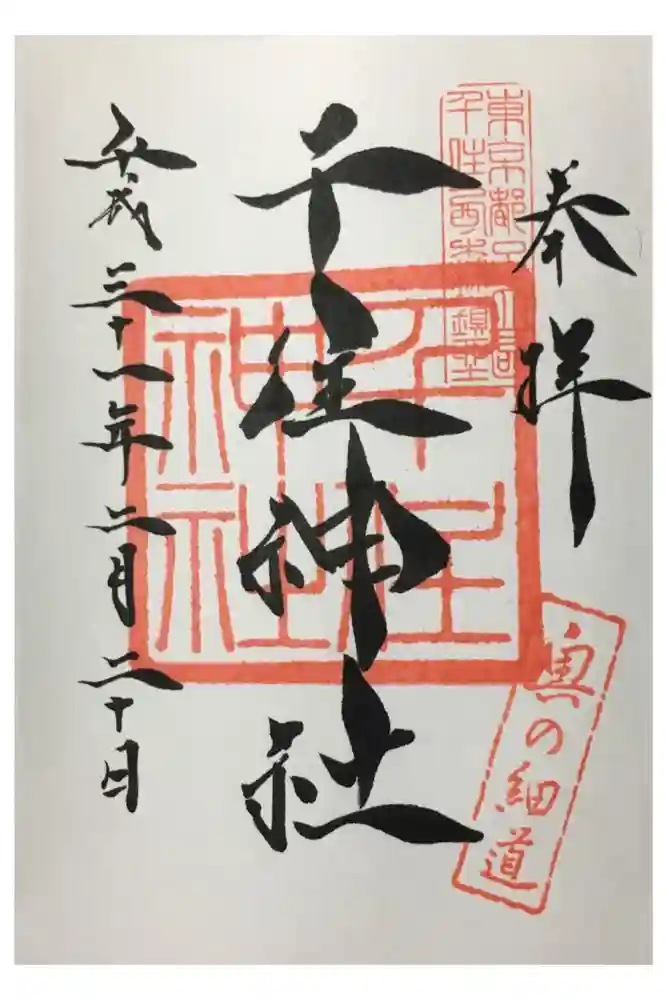 奉拝
千住神社
平成三十一年二月二十日
千住神社
奥の細道
東京都足
千住西森 鎮座